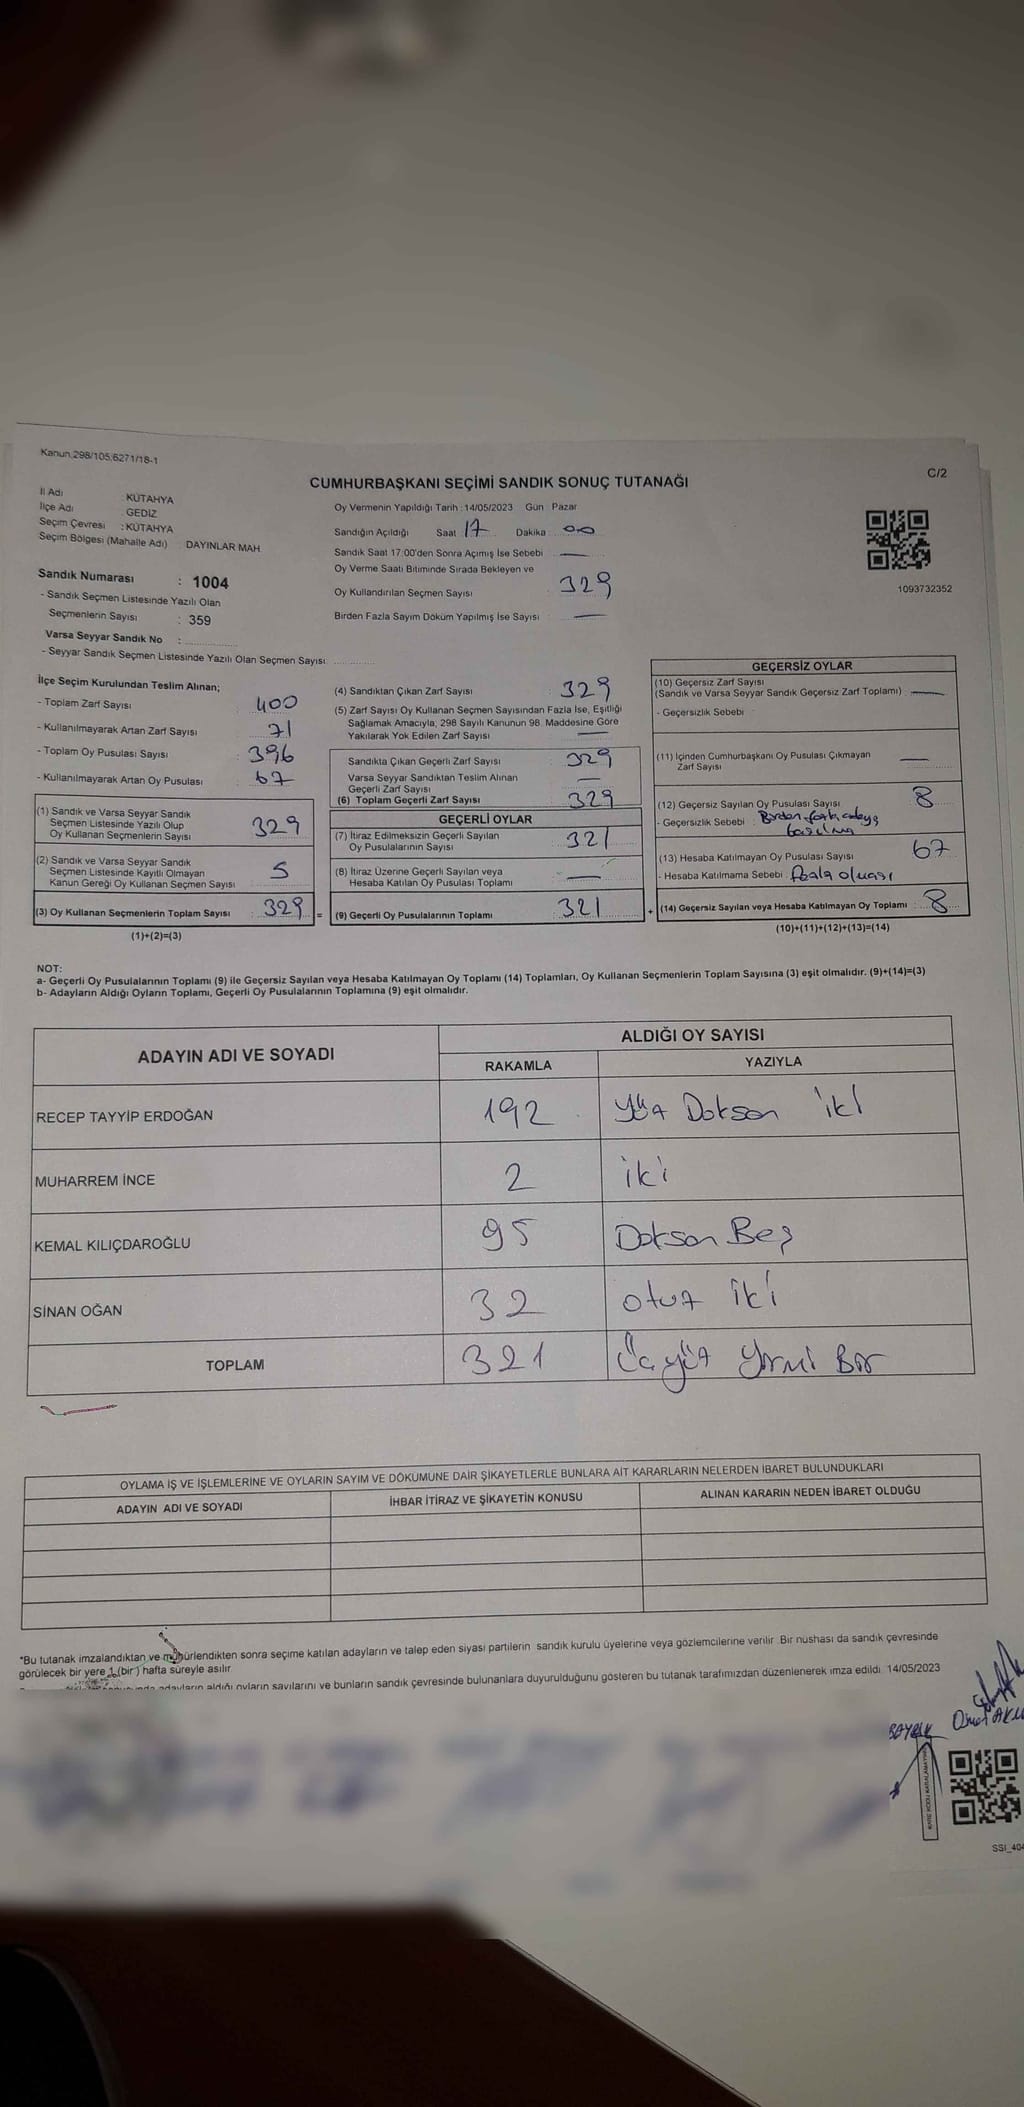 Kanun,298/105,6271/18-1
C/2
CUMHURBAŞKANI SEÇİMİ SANDIK SONUÇ TUTANAĞI
İl Adı : KÜTAHYA
İlçe Adı : GEDİZ
Seçim Çevresi : KÜTAHYA
Seçim Bölgesi (Mahalle Adı) DAYINLAR MAH
Sandık Numarası : 1004
- Sandık Seçmen Listesinde Yazılı Olan
Seçmenlerin Sayısı : 359
Varsa Seyyar Sandık No :
- Seyyar Sandık Seçmen Listesinde Yazılı Olan Seçmen Sayısı
Oy Vermenin Yapıldığı Tarih : 14/05/2023 Gün Pazar
Sandığın Açıldığı Saat 17 Dakika 00
Sandık Saat 17:00'den Sonra Açımış İse Sebebi —
Oy Verme Saati Bitiminde Sırada Bekleyen ve
Oy Kullandırılan Seçmen Sayısı : 329
Birden Fazla Sayım Döküm Yapılmış İse Sayısı : —
1093732352
İlçe Seçim Kurulundan Teslim Alınan;
- Toplam Zarf Sayısı : 400
- Kullanılmayarak Artan Zarf Sayısı : 71
- Toplam Oy Pusulası Sayısı : 396
- Kullanılmayarak Artan Oy Pusulası : 67
(1) Sandık ve Varsa Seyyar Sandık
Seçmen Listesinde Yazılı Olup
Oy Kullanan Seçmenlerin Sayısı : 329
(2) Sandık ve Varsa Seyyar Sandık
Seçmen Listesinde Kayıtlı Olmayan
Kanun Gereği Oy Kullanan Seçmen Sayısı : 5
(3) Oy Kullanan Seçmenlerin Toplam Sayısı : 329 =
(1)+(2)=(3)
(4) Sandıktan Çıkan Zarf Sayısı : 329
(5) Zarf Sayısı Oy Kullanan Seçmen Sayısından Fazla İse, Eşitliği
Sağlamak Amacıyla, 298 Sayılı Kanunun 98. Maddesine Göre
Yakılarak Yok Edilen Zarf Sayısı —
Sandıkta Çıkan Geçerli Zarf Sayısı : 329
Varsa Seyyar Sandıktan Teslim Alınan
Geçerli Zarf Sayısı —
(6) Toplam Geçerli Zarf Sayısı : 329
GEÇERLİ OYLAR
(7) İtiraz Edilmeksizin Geçerli Sayılan
Oy Pusulalarının Sayısı : 321
(8) İtiraz Üzerine Geçerli Sayılan veya
Hesaba Katılan Oy Pusulası Toplamı : —
(9) Geçerli Oy Pusulalarının Toplamı : 321 +
GEÇERSİZ OYLAR
(10) Geçersiz Zarf Sayısı
(Sandık ve Varsa Seyyar Sandık Geçersiz Zarf Toplamı) : —
- Geçersizlik Sebebi :
(11) İçinden Cumhurbaşkanı Oy Pusulası Çıkmayan
Zarf Sayısı —
(12) Geçersiz Sayılan Oy Pusulası Sayısı 8
- Geçersizlik Sebebi : Birden fazla adaya
basılma
(13) Hesaba Katılmayan Oy Pusulası Sayısı 67
- Hesaba Katılmama Sebebi : fazla olması
(14) Geçersiz Sayılan veya Hesaba Katılmayan Oy Toplamı : 8
(10)+(11)+(12)+(13)=(14)
NOT:
a- Geçerli Oy Pusulalarının Toplamı (9) ile Geçersiz Sayılan veya Hesaba Katılmayan Oy Toplamı (14) Toplamları, Oy Kullanan Seçmenlerin Toplam Sayısına (3) eşit olmalıdır. (9)+(14)=(3)
b- Adayların Aldığı Oyların Toplamı, Geçerli Oy Pusulalarının Toplamına (9) eşit olmalıdır.
ADAYIN ADI VE SOYADI
ALDIĞI OY SAYISI
RAKAMLA YAZIYLA
RECEP TAYYİP ERDOĞAN 192 Yüz Doksan iki
MUHARREM İNCE 2 iki
KEMAL KILIÇDAROĞLU 95 Doksan Beş
SİNAN OĞAN 32 otuz iki
TOPLAM 321 Üçyüz Yirmi Bir
OYLAMA İŞ VE İŞLEMLERİNE VE OYLARIN SAYIM VE DÖKÜMÜNE DAİR ŞİKAYETLERLE BUNLARA AİT KARARLARIN NELERDEN İBARET BULUNDUKLARI
ADAYIN ADI VE SOYADI İHBAR İTİRAZ VE ŞİKAYETİN KONUSU ALINAN KARARIN NEDEN İBARET OLDUĞU
*Bu tutanak imzalandıktan ve mühürlendikten sonra seçime katılan adayların ve talep eden siyasi partilerin sandık kurulu üyelerine veya gözlemcilerine verilir. Bir nüshası da sandık çevresinde
görülecek bir yere 1 (bir) hafta süreyle asılır.
adayların aldığı oyların sayılarını ve bunların sandık çevresinde bulunanlara duyurulduğunu gösteren bu tutanak tarafımızdan düzenlenerek imza edildi. 14/05/2023
KARE KODU KARALAMAYINIZ